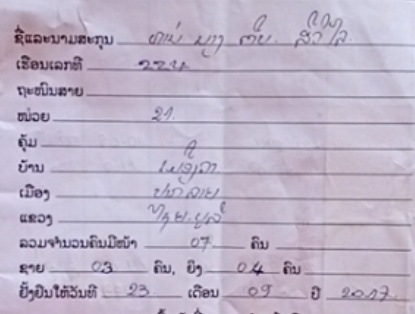 ຊື່ແລະນາມສະກຸນ ທ່ານ ນາງ
ເຮືອນເລກທີ 224
ຖະໜົນສາຍ
ໜ່ວຍ 21.
ຄຸ້ມ
ບ້ານ
ເມືອງ ປາກລາຍ
ແຂວງ ໄຊຍະບູລີ
ລວມຈຳນວນຄົນມີໜ້າ 07 ຄົນ
ຊາຍ 03 ຄົນ, ຍິງ 04 ຄົນ
ຢັ້ງຢືນໃຫ້ວັນທີ 23 ເດືອນ 09 ປີ 2017